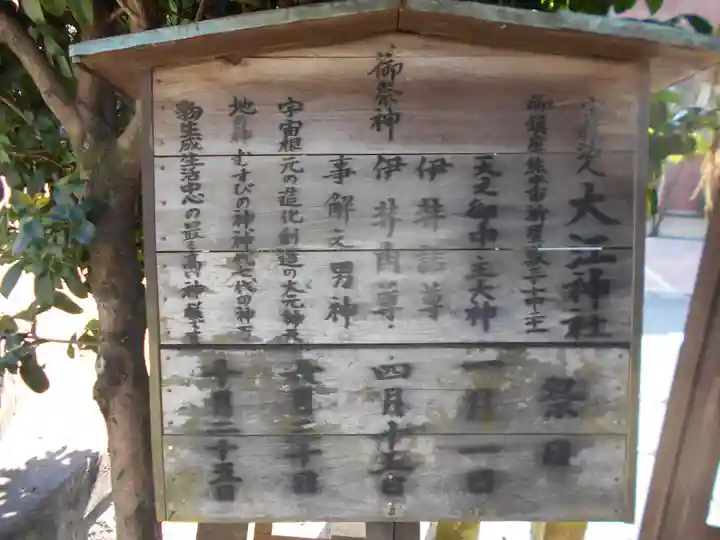 宗教法人 大江神社
御鎮座 熊本市
御祭神
天之御中主大神
伊井諾尊
伊井冉尊
事解之男神
宇宙根元の造化創造の大元神
地 むすびの神神代七代の神
物生成生活中心の最高神
祭日
一月一日
四月十五日
月二十日
十月二十五日